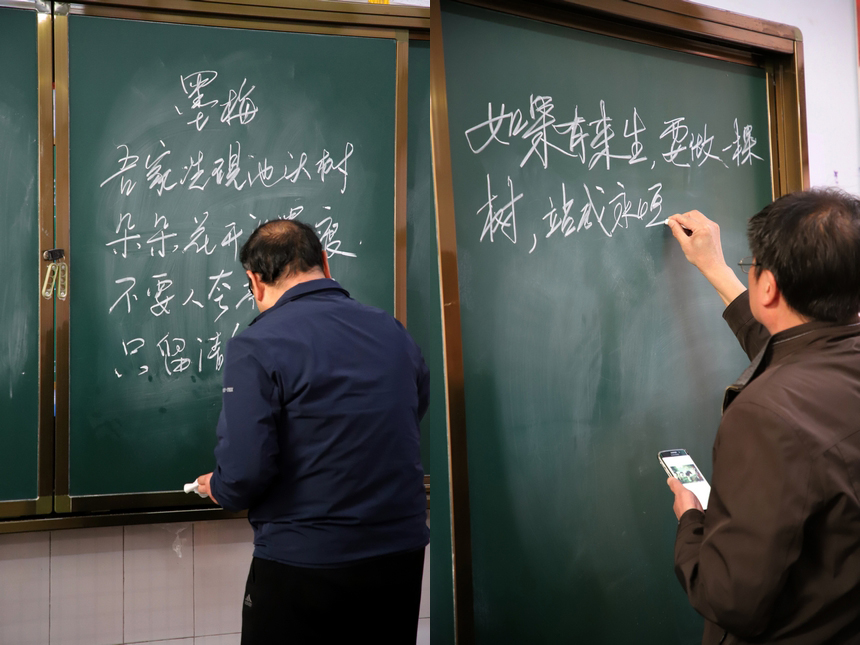 墨梅
吾家洗砚池头树
朵朵花开痕.
不要人夸
只留清
如果有来生,要做一棵
树,站成永恒